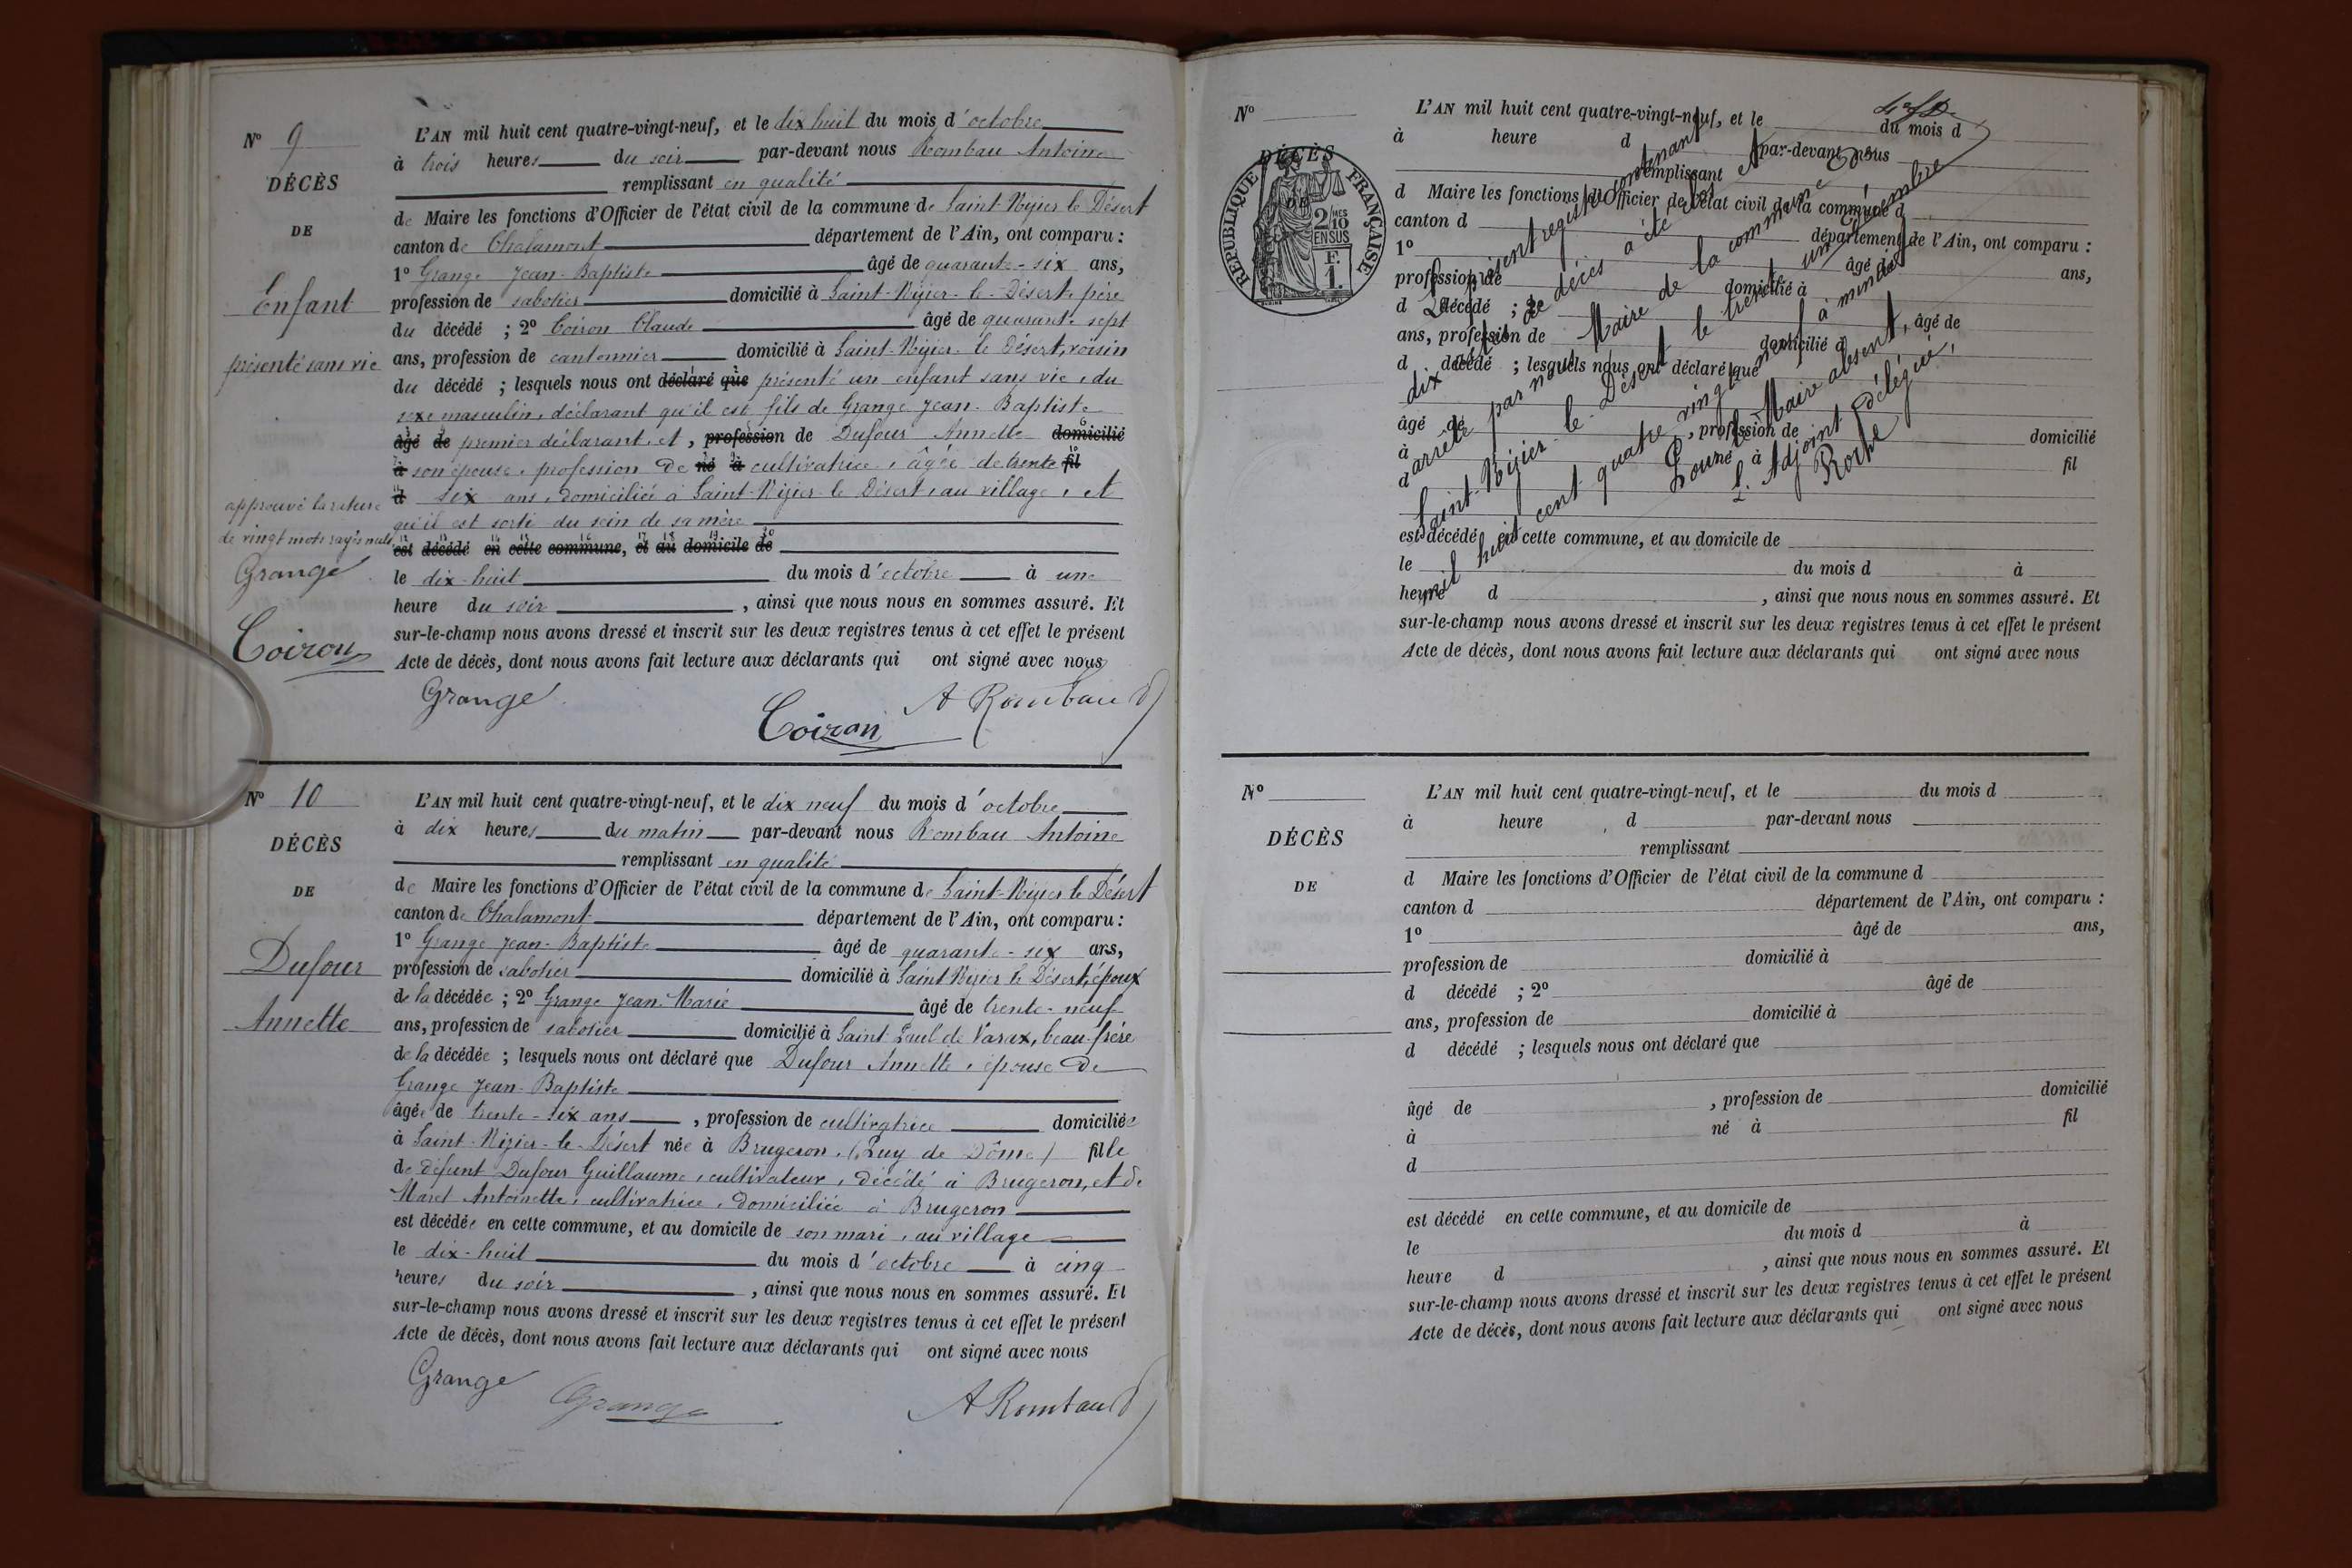 Nº 9
DÉCÈS
DE
Enfant
présenté sans vie
L'AN mil huit cent quatre-vingt-neuf, et le dix huit du mois d'octobre
à trois heures du soir par-devant nous Rombau Antoine
remplissant en qualité
de Maire les fonctions d'Officier de l'état civil de la commune de Saint-Nizier le Désert
canton de Chalamont département de l'Ain, ont comparu :
1º Grange Jean-Baptiste âgé de quarante-six ans,
profession de sabotier domicilié à Saint-Nizier-le-Désert, père
du décédé ; 2º Coiron Claude âgé de quarante sept
ans, profession de cantonnier domicilié à Saint-Nizier-le Désert, voisin
du décédé ; lesquels nous ont déclaré que présenté un enfant sans vie, du
sexe masculin, déclarant qu'il est fils de Grange Jean-Baptiste
âgé de premier déclarant, et, profession de Dufour Annette domicilié
à son épouse, profession de né à cultivatrice, âgée de trente fil
d six ans, domiciliée à Saint-Nizier-le Désert, au village, et
qu'il est sorti du sein de sa mère
est décédé en cette commune, et au domicile de
le dix-huit du mois d'octobre à une
heure du soir, ainsi que nous nous en sommes assuré. Et
sur-le-champ nous avons dressé et inscrit sur les deux registres tenus à cet effet le présent
Acte de décès, dont nous avons fait lecture aux déclarants qui ont signé avec nous
approuvé la rature
de vingt mots rayés nuls
Grange
Coiron
Grange
Coiron
A Rombaud
Nº 10
DÉCÈS
DE
Dufour
Annette
L'AN mil huit cent quatre-vingt-neuf, et le dix neuf du mois d'octobre
à dix heures du matin par-devant nous Rombau Antoine
remplissant en qualité
de Maire les fonctions d'Officier de l'état civil de la commune de Saint-Nizier le Désert
canton de Chalamont département de l'Ain, ont comparu :
1º Grange Jean-Baptiste âgé de quarante-six ans,
profession de sabotier domicilié à Saint Nizier le Désert, époux
de la décédée ; 2º Grange Jean Marie âgé de trente-neuf
ans, profession de sabotier domicilié à Saint Paul de Varax, beau-frère
de la décédée ; lesquels nous ont déclaré que Dufour Annette, épouse de
Grange Jean-Baptiste
âgée de trente-six ans, profession de cultivatrice domiciliée
à Saint-Nizier-le-Désert née à Brugeron, (Puy de Dôme) fille
de défunt Dufour Guillaume, cultivateur, décédé à Brugeron, et de
Maret Antoinette, cultivatrice, domiciliée à Brugeron
est décédée en cette commune, et au domicile de son mari, au village
le dix-huit du mois d'octobre à cinq
heures du soir, ainsi que nous nous en sommes assuré. Et
sur-le-champ nous avons dressé et inscrit sur les deux registres tenus à cet effet le présent
Acte de décès, dont nous avons fait lecture aux déclarants qui ont signé avec nous
Grange
Grange
A Rombaud
Nº
DÉCÈS
DE
RÉPUBLIQUE FRANÇAISE
2/10 MES
EN SUS
F.
1.
L'AN mil huit cent quatre-vingt-neuf, et le du mois d
à heure d par-devant nous
remplissant
d Maire les fonctions d'Officier de l'état civil de la commune d
canton d département de l'Ain, ont comparu :
1º âgé de ans,
profession de domicilié à
d décédé ; 2º âgé de
ans, profession de domicilié à
d décédé ; lesquels nous ont déclaré que
âgé de , profession de domicilié
à né à fil
d
est décédé en cette commune, et au domicile de
le du mois d à
heure d , ainsi que nous nous en sommes assuré. Et
sur-le-champ nous avons dressé et inscrit sur les deux registres tenus à cet effet le présent
Acte de décès, dont nous avons fait lecture aux déclarants qui ont signé avec nous
Le présent registre contenant
dix actes de décès a été clos et
arrêté par nous Maire de la commune de
Saint-Nizier-le-Désert le trente un décembre
mil huit cent quatre vingt neuf à minuit
Pour le Maire absent,
L'Adjoint délégué,
Roche
Nº
DÉCÈS
DE
L'AN mil huit cent quatre-vingt-neuf, et le du mois d
à heure d par-devant nous
remplissant
d Maire les fonctions d'Officier de l'état civil de la commune d
canton d département de l'Ain, ont comparu :
1º âgé de ans,
profession de domicilié à
d décédé ; 2º âgé de
ans, profession de domicilié à
d décédé ; lesquels nous ont déclaré que
âgé de , profession de domicilié
à né à fil
d
est décédé en cette commune, et au domicile de
le du mois d à
heure d , ainsi que nous nous en sommes assuré. Et
sur-le-champ nous avons dressé et inscrit sur les deux registres tenus à cet effet le présent
Acte de décès, dont nous avons fait lecture aux déclarants qui ont signé avec nous